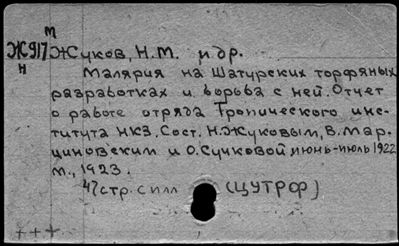 М
Ж917 Жуков, Н.М. и др.
Н
Малярия на Шатурских торфяных
разработках и борьба с ней. Отчет
о работе отряда Тропического инс-
титута НКЗ. Сост. Н. Жуковым, В. Мар-
циновским и О. Сучковой июнь-июль 1922
М., 1923.
47стр. с илл (ЦУТРФ)
+++